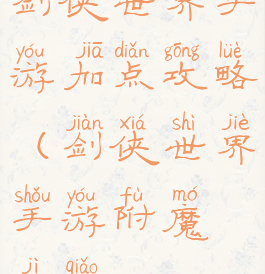 剑侠世界手
yóu jiā diǎn gōng lüè
游加点攻略
jiàn xiá shì jiè
(剑侠世界
shǒu yóu fù mó
手游附魔
jì qiǎo